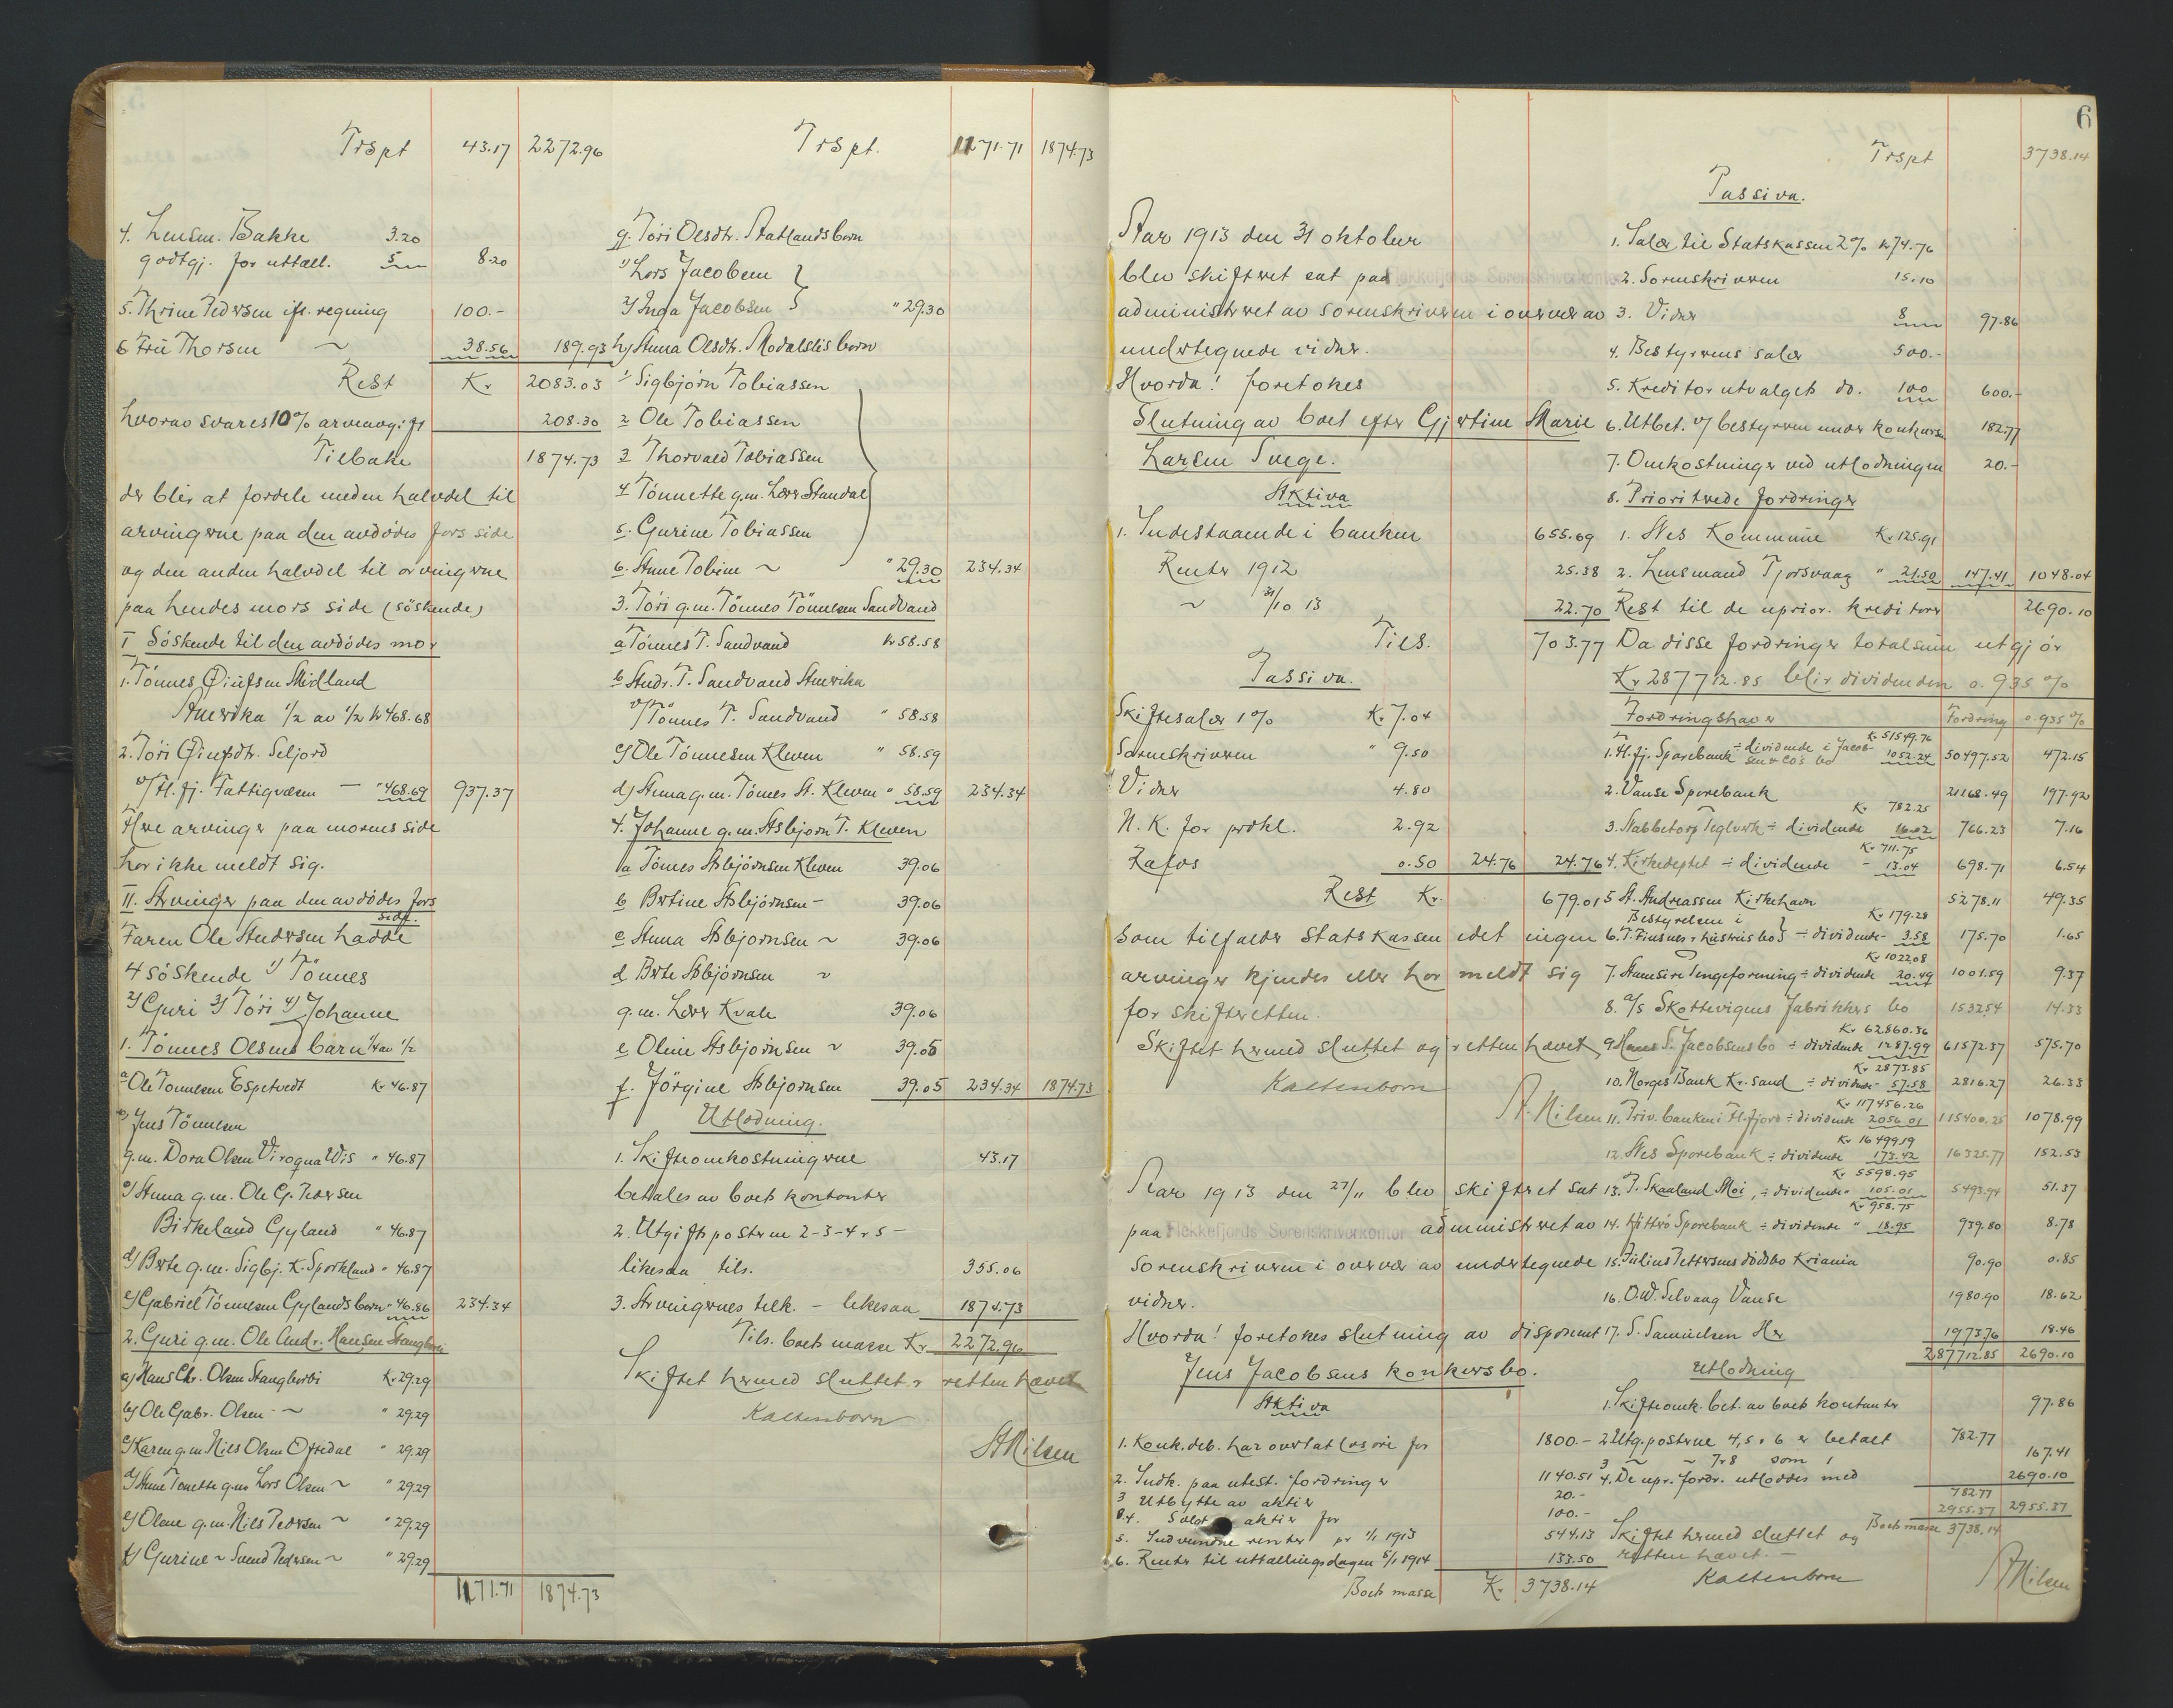 Trspt 43.17 2272.96
4. Lensm. Bakke 3.20
godtgj. for uttæll. 5 8.20
5. Thrine Pedersen ifl. regning 100.-
6 Frü Thorsen ~ 38.56 189.93
Rest Kr 2083.03
hvorav svares 10% arveavgift 208.30
Tilbake 1874.73
der blir at fordele med en halvdel til
arvingerne paa den avdødes fars side
og den anden halvdel til arvingerne
paa hendes mors side (söskende)
I Söskende til den avdödes mor
1. Tönnes Øiüfsen Midland
Amerika 1/2 av 1/2 kr 468.68
2. Töri Øiufsdtr. Seljord
v/ Fl. fj. Fattigvæsen — " 468.69 937.37
Flere arvinger paa morens side
har ikke meldt sig.
II. Arvinger paa den avdödes fars
side.
Faren Ole Andersen hadde
4 söskende 1) Tönnes
2) Guri 3) Töri 4) Johanne
1. Tönnes Olsens barn 1/4 av 1/2
a Ole Tönnesen Espetvedt Kr 46.87
b) Jens Tönnesen
g.m. Dora Olsen Viroqua Wis " 46.87
c) Anna g.m. Ole G. Pedersen
Birkeland Gyland " 46.87
d) Berte g.m. Sigbj. K. Sporkland " 46.87
e) Gabriel Tönnesen Gylands barn " 46.86 234.34
2. Guri g.m. Ole Andr. Hansen Stangborli
a) Hans Chr. Olsen Stangborli Kr 29.29
b) Ole Gabr. Olsen - ~ " 29.29
c) Karen g.m. Nils Olsen Øfstedal " 29.29
d) Anne Tonette g.m. Lars Olsen ~ " 29.29
e) Olene g.m. Nils Pedersen ~ " 29.29
f) Gurine ~ Svend Pedersen ~ " 29.29
1171.71 1874.73
Trspt. 1171.71 1874.73
g. Töri Olsdtr. Statlands barn
1) Lars Jacobsen
2) Inga Jacobsen " 29.30
h) Anna Olsdtr. Modalslis barn
1) Sigbjörn Tobiassen
2 Ole Tobiassen
3 Thorvald Tobiassen
4 Tönnette g.m. Lars Standal
5. Gurine Tobiassen
6. Anne Tobine ~ " 29.30 234.34
3. Töri g.m. Tönnes Tönnesen Sandvand
a Tönnes T. Sandvand kr 58.58
b Andr. T. Sandvand Amerika
v/ Tönnes T. Sandvand " 58.58
c) Ole Tönnesen Kleven " 58.59
d) Anna g.m. Tönnes A. Kleven " 58.59 234.34
4. Johanne g.m. Asbjörn T. Kleven
a Tönnes Asbjörnsen Kleven 39.06
b Bertine Asbjörnsen - 39.06
c Anna Asbjornsen ~ 39.06
d Berte Asbjörnsen ~
g.m. Lars Kvale 39.06
e Oline Asbjörnsen ~ 39.05
f. Jörgine Asbjornsen 39.05 234.34 1874.73
Utlodning.
1. Skifteomkostningerne 43.17
betales av boets kontanter
2. Utgiftsposterne 2-3-4 & 5 -
likesaa tils. 355.06
3. Arvingernes tilk. - likesaa 1874.73
Tils. boets masse Kr 2272.96
Skiftet hermed sluttet & retten hævet
Kaltenborn
A Nilsen
6
Aar 1913 den 31 oktober
blev skifteret sat paa Flekkefjords Sorenskriverkontor
administreret av sorenskriveren i overvær av
undertegnede vidner.
Hvorda! foretokes
Slutning av boet efter Gjertine Marie
Larsen Svege.
Aktiva
1. Indestaaende i banken 655.69
Renter 1912 25.38
~ 31/10 13 22.70
Tils. 703.77
Passiva.
Skiftesalær 1% Kr. 7.04
Sorenskriveren " 9.50
Vidner 4.80
N. K. for prokl. 2.92
Rafos 0.50 24.76 24.76
Rest Kr. 679.01
som tilfalder Statskassen idet ingen
arvinger kjendes eller har meldt sig
for skifteretten.
Skiftet hermed sluttet og retten hævet
Kaltenborn
A. Nilsen
Aar 1913 den 27/11 blev skifteret sat
paa Flekkefjords Sorenskriverkontor administreret av
sorenskriveren i overvær av undertegnede
vidner.
Hvorda! foretokes slutning av disponent
Jens Jacobsens konkursbo.
Aktiva
1. Konk. deb. har overtat løsöre for 1800.-
2. Indk. paa utest. fordringer 1140.51
3 Utbytte av aktier 20.-
4. Solgt aktier for 100.-
5. Indvundne renter pr 1/1 1913 544.13
6. Renter til uttællingsdagen 5/1 1914 133.50
Boets masse Kr 3738.14
Trspt 3738.14
Passiva.
1. Salær til Statskassen 2% kr 74.76
2. Sorenskriveren 15.10
3. Vidner 8 97.86
4. Bestyrerens salær 500.-
5. Kreditorutvalgets do. 100 600.-
6. Utbet. v/ bestyreren under konkursen 182.77
7. Omkostninger ved utlodningen 20.-
8. Prioriterede fordringer
1. Nes Kommune Kr 125.91
2. Lensmand Tjorsvaag " 21.50 147.41 1048.04
Rest til de uprior. kreditorer 2690.10
Da disse fordringer totalsum utgjör
Kr 287712.85 blir dividenden 0.935 %
Fordringshaver Fordring 0.935 %
Kr 51549.76
1. Fl.fj. Sparebank ÷ dividende i Jacobsen & Co's bo 1052.24 50497.52 472.15
2. Vanse Sparebank 21168.49 197.92
Kr 782.25
3. Stabbetorp Teglverk ÷ dividende 16.02 766.23 7.16
Kr 711.75
4. Kirkedeptet ÷ dividende - 13.04 698.71 6.54
5 A. Andreassen Kirkehavn 5278.11 49.35
Bestyrelsen i Kr 179.28
6. T. Finsnes & hustrus bo ÷ dividende - 3.58 175.70 1.65
Kr 1022.08
7. Stamsire Tungeforening ÷ dividende 20.49 1001.59 9.37
8. A/S Skottevigens Fabrikkers bo 1532.54 14.33
Kr 62860.36
9 Hans S. Jacobsens bo ÷ dividende 1287.99 61572.37 575.70
Kr 2873.85
10. Norges Bank Kr.sand ÷ dividende - 57.58 2816.27 26.33
Kr 117456.26
11. Priv. banken i Fl.fjord ÷ dividende 2056.01 115400.25 1078.99
Kr 16499.19
12. Nes Sparebank ÷ dividende 173.42 16325.77 152.53
Kr 5598.95
13. P. Skaaland Moi, ÷ dividende " 105.01 5493.94 51.37
Kr 958.75
14. Hitterö Sparebank ÷ dividende " 18.95 939.80 8.78
15. Julius Pettersens dödsbo Kriania 90.90 0.85
16. O.W. Selvaag Vanse 1980.90 18.62
17. S. Samuelsen Her 1973.76 18.46
287712.85 2690.10
Utlodning
1. Skifteomk. bet. av boets kontanter 97.86
2 Utg. posterne 4, 5 & 6 er betalt 782.77
3 ~ ~ 7 & 8 som 1 167.41
4. De upr. fordr. utloddes med 2690.10
782.77
2955.37 2955.37
Boets masse 3738.14
Skiftet hermed sluttet og
retten hævet. -
Kaltenborn
A Nilsen